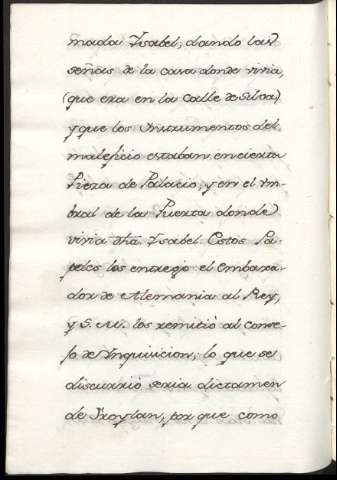 mada Ysabel, dando las
señas de la casa donde vivia,
(que era en la Calle de Silva)
y que los Instrumentos del
maleficio estaban en cierta
Pieza de Palacio, y en el um-
bral de la Puerta donde
vivia dha Ysabel. Estos Pa-
peles los entregó el Embaxa-
dor de Alemania al Rey,
y S. M. los remitió al Conse-
jo de Inquisicion; lo que se
discurrió seria dictamen
de Froylan, por que como